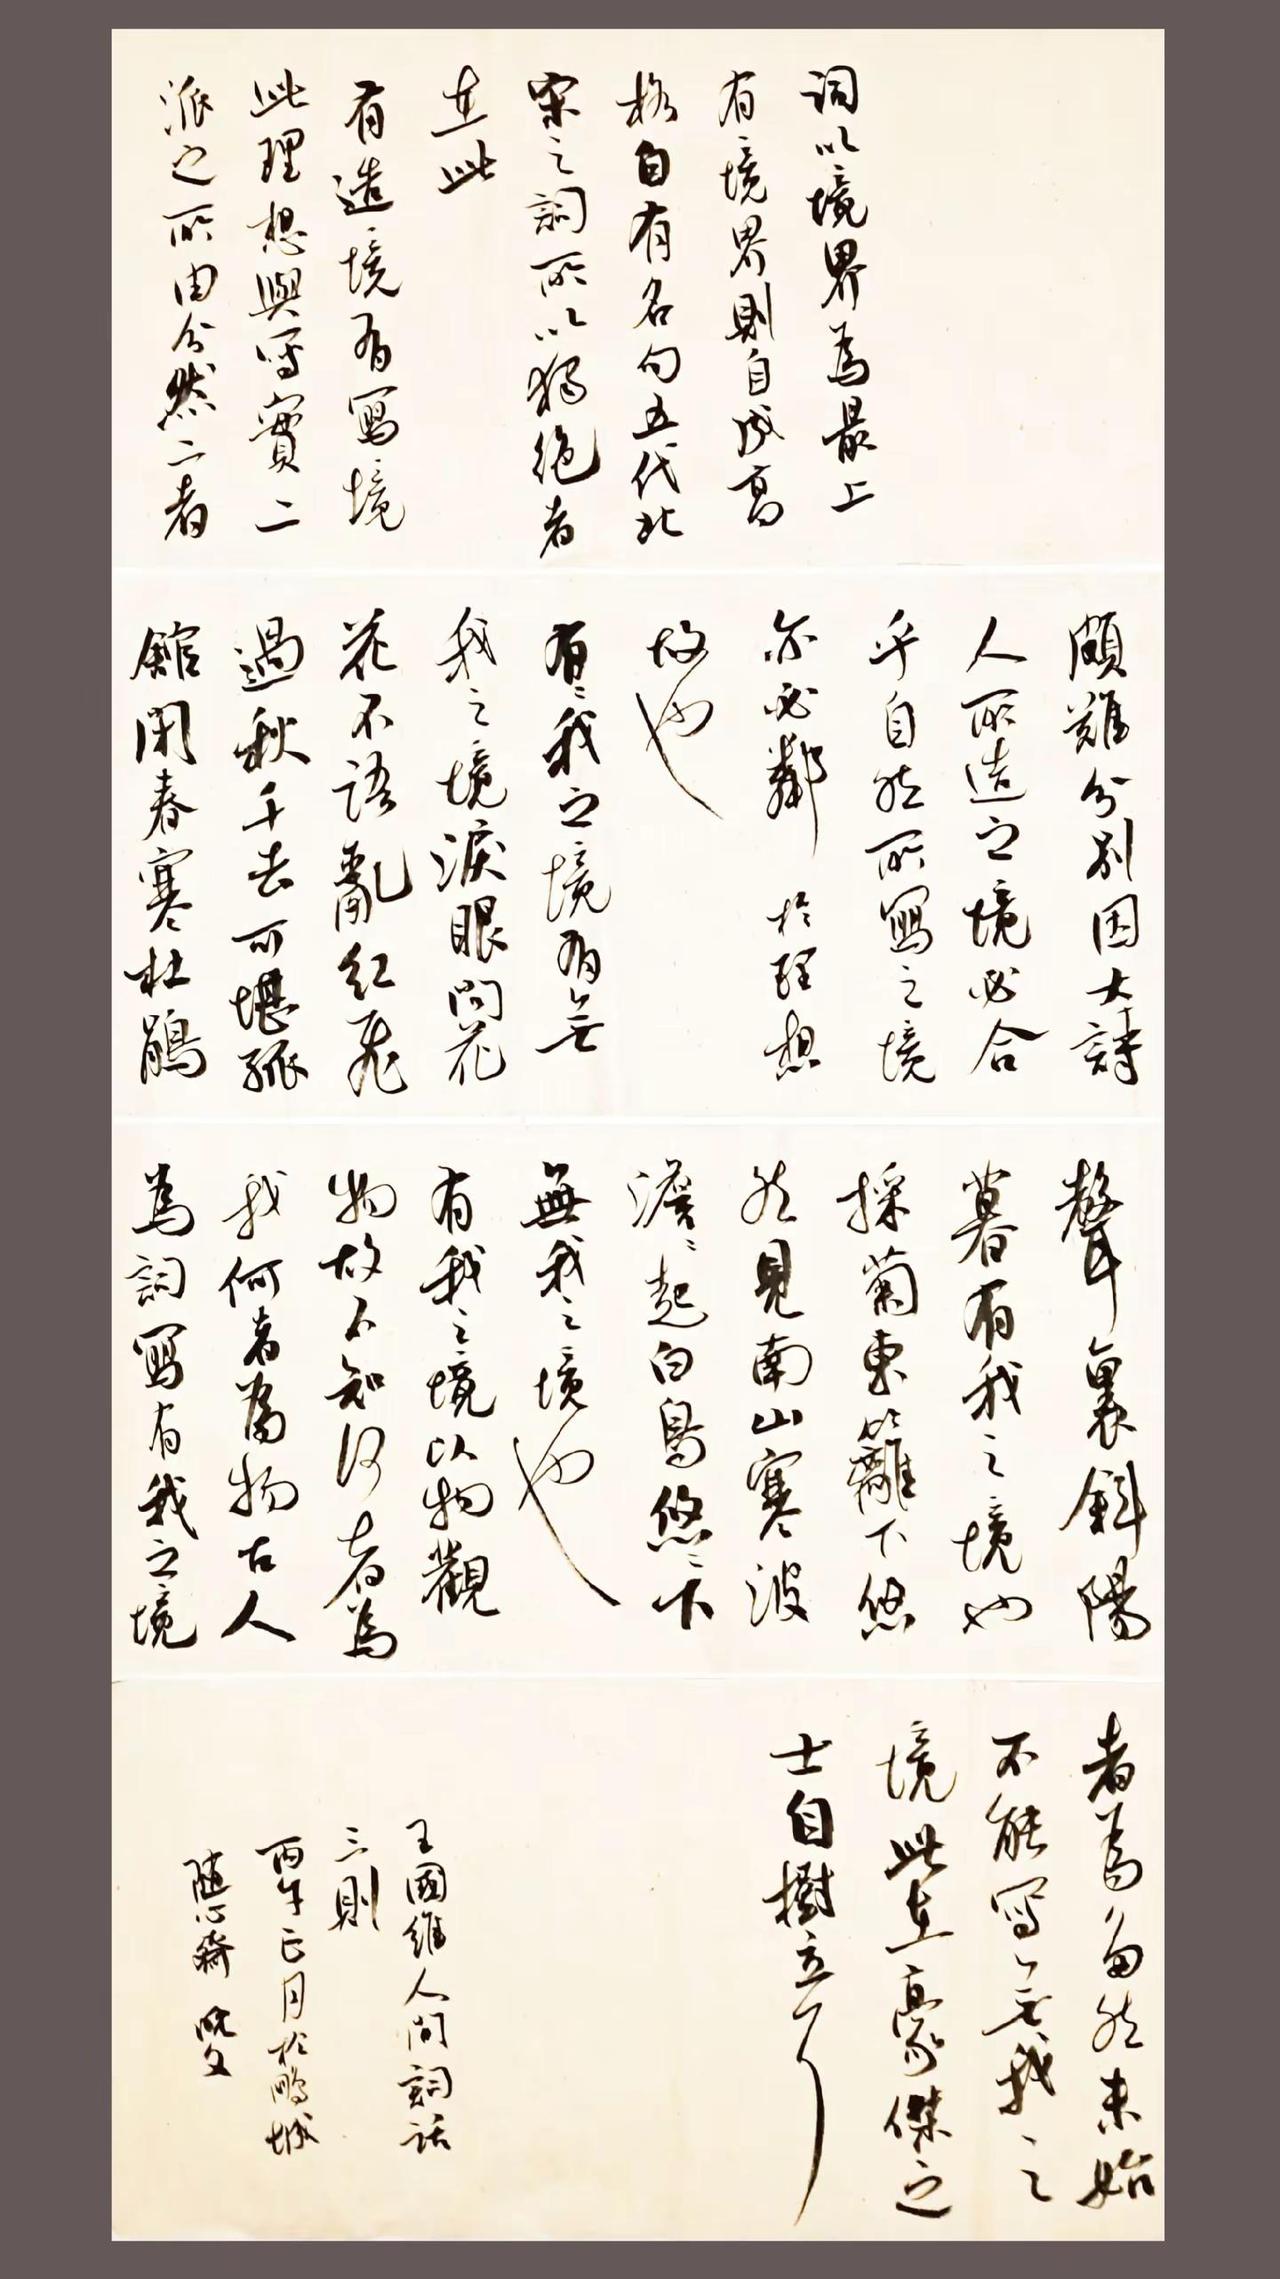 詞以境界為最上
有境界則自成高
格自有名句五代北
宋之詞所以獨絕者
在此
有造境有寫境
此理想與寫實二
派之所由分然二者
頗難分別因大詩
人所造之境必合
乎自然所寫之境
亦必鄰於理想
故也
有〻我之境有無
我之境淚眼問花
花不語亂紅飛
過秋千去可堪孤
館閉春寒杜鵑
聲裏斜陽
暮有我之境也
採菊東籬下悠
然見南山寒波
澹〻起白鳥悠〻下
無我之境也
有我之境以物觀
物故不知何者為
我何者為物古人
為詞寫有我之境
者為多然未始
不能寫無我之
境此在豪傑之
士自樹立耳
王國維人間詞話
三則
丙午正月於鵬城
隨心齋